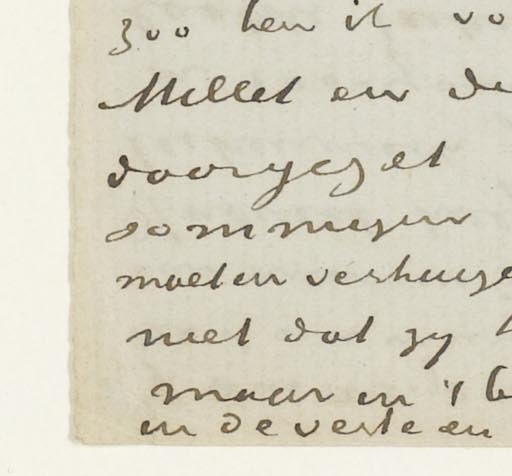 zoo ben ik vo
Millet en de
doorgezet
sommigen
moeten verhuize
niet dat zy
maar in 't b
en de verte en